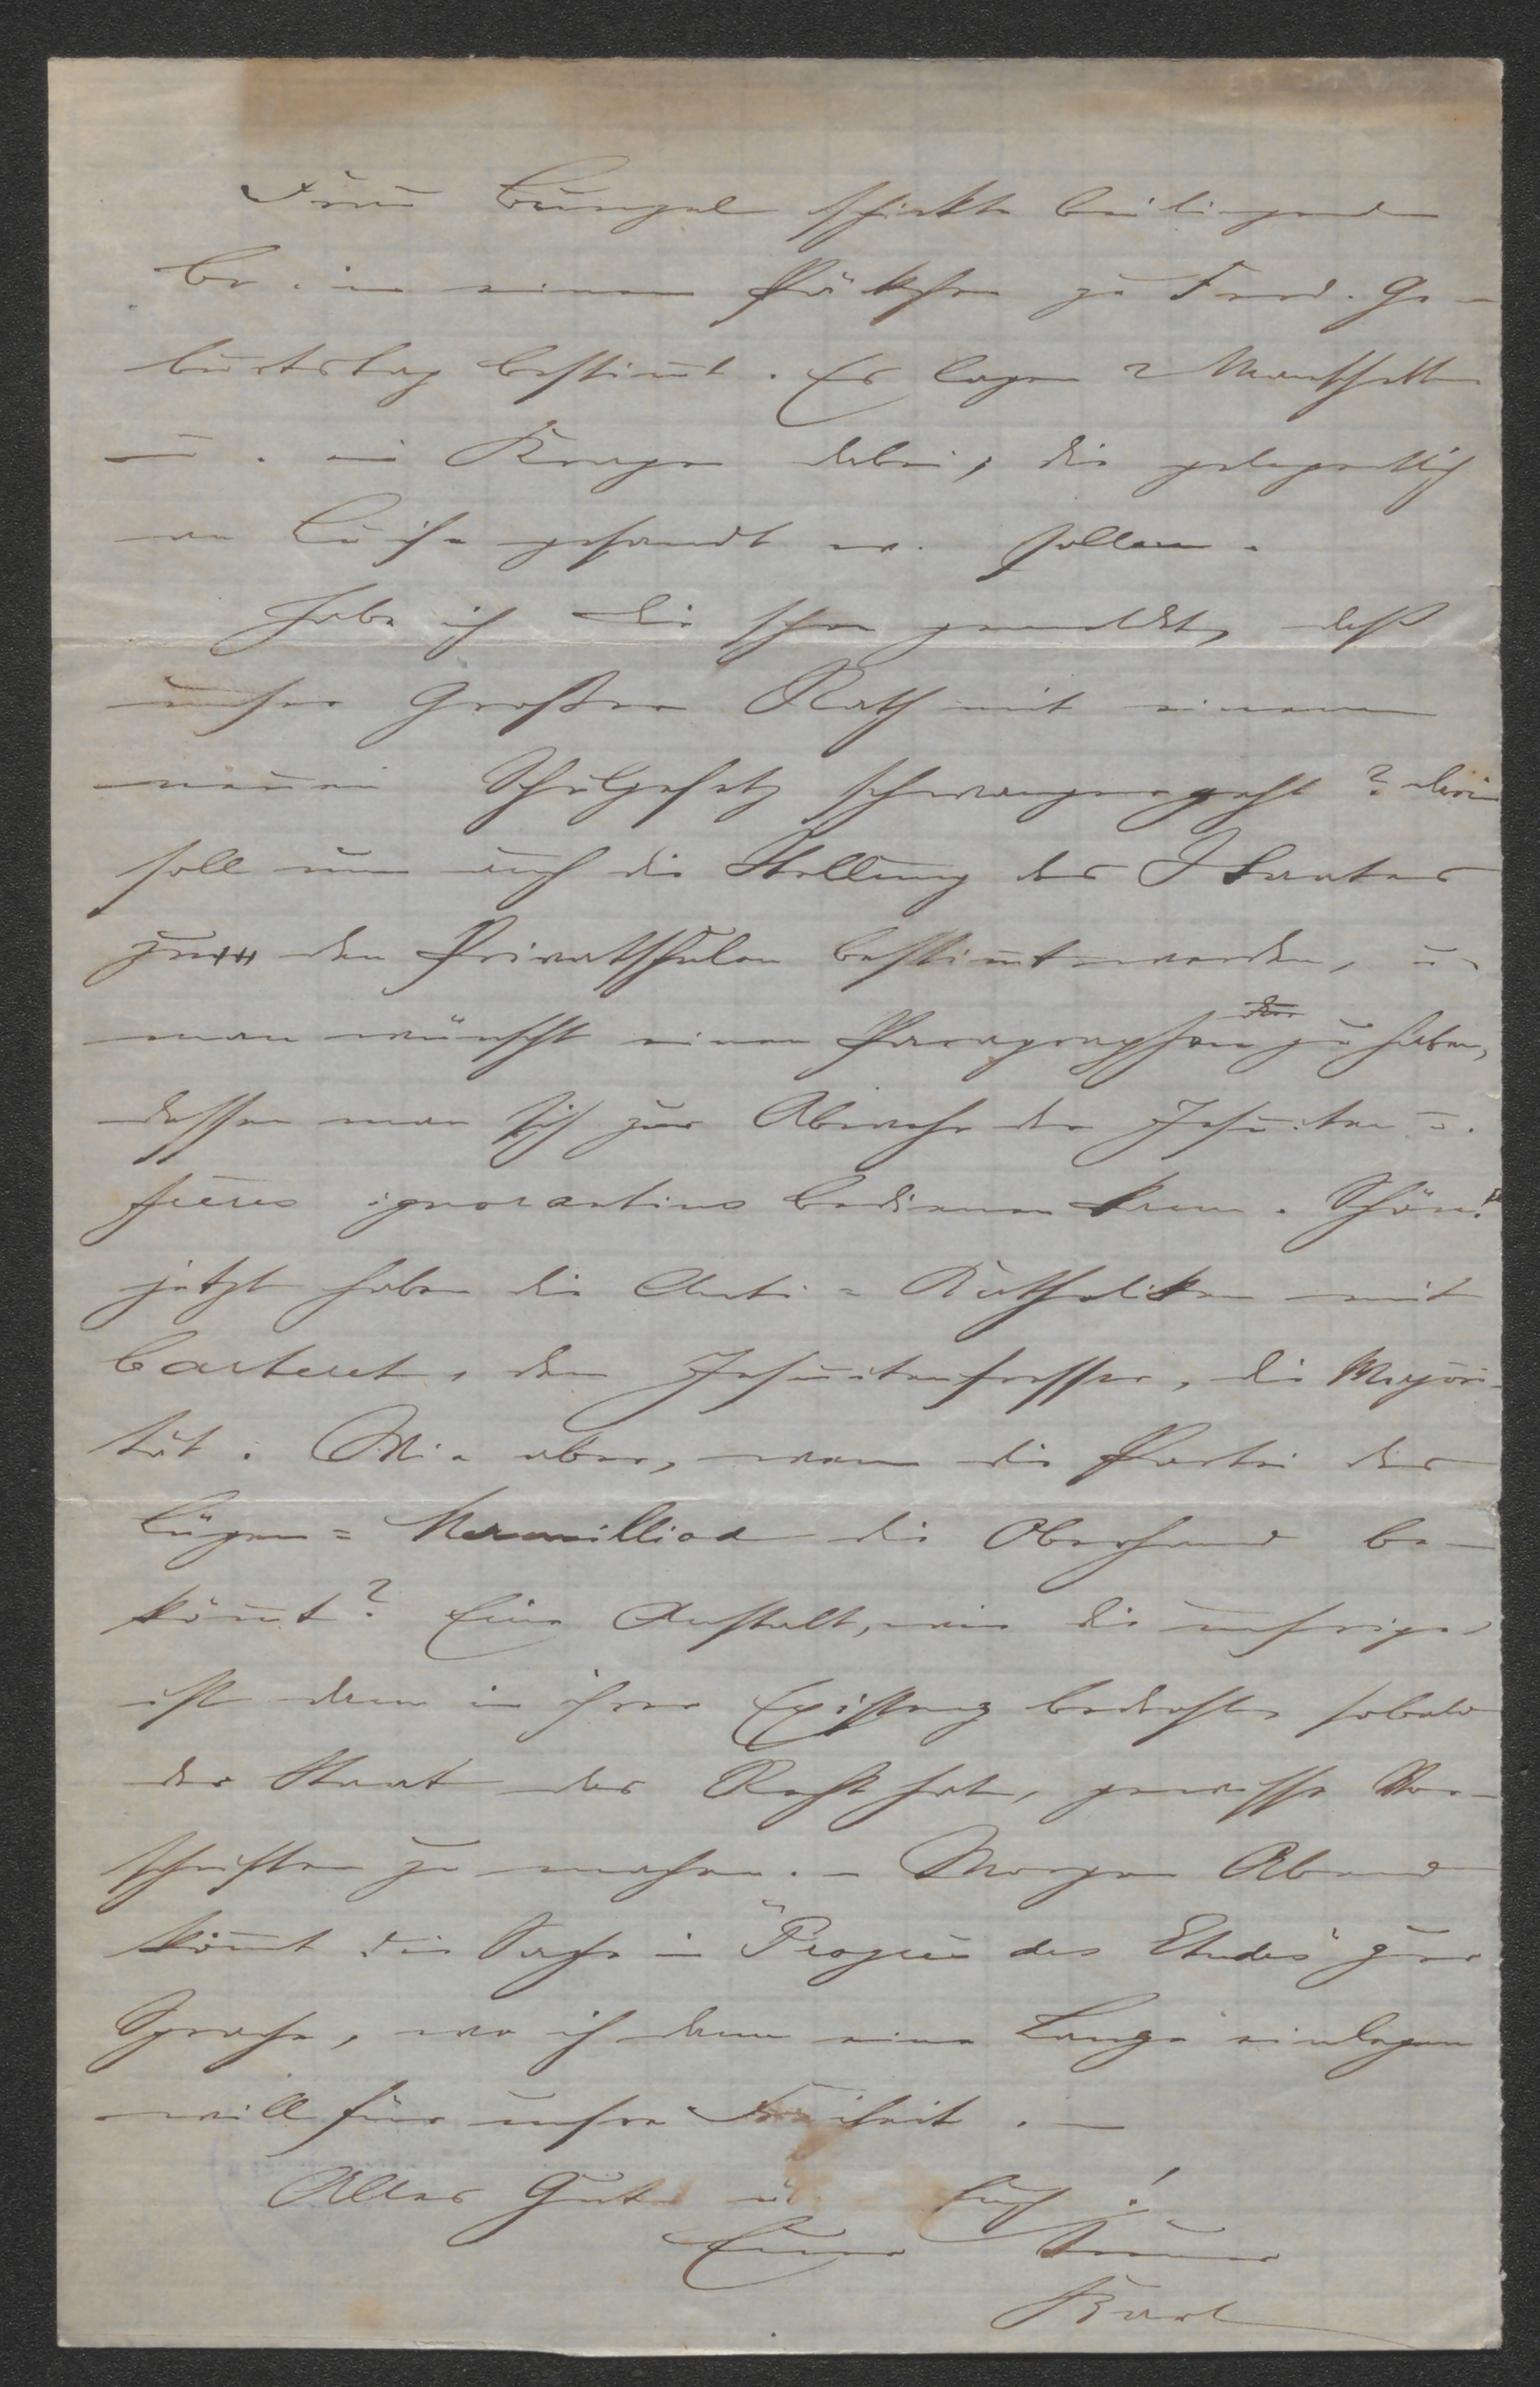 Frau Bungel schickte beiliegenden
Br. in einem Päckchen zu Ferd. Ge-
burtstag bestim̄t. Es lagen 2 Manschetten
u. ein Kragen dabei, die gelegentlich
an Luise gesandt w. sollen.
Habe ich Dir schon gemeldet, daß
unser Großer Rath mit einem
neuen Schulgesetz schwanger geht? darin
soll nun auch die Stellung des Staates
zu den Privatschulen bestim̄t werden, u.
man wünscht einen Paragraphen zu haben,
dessen man sich zur Abwehr der Jesuiten u.
frères ignorantins bedienen kann. Schön!
jetzt haben die Anti-Katholiken mit
Carteret, dem Jesuitenfresser, die Majori-
tät. Wie aber, wenn die Partei des
Lügen-Mermilliod die Oberhand be-
köm̄t? Eine Anstalt, wie die unsrige
ist dann in ihrer Existenz bedroht, sobald
der Staat das Recht hat, gewisse Vor-
schriften zu machen. - Morgen Abend
köm̄t die Sache in "Progrès des Etudes" zur
Sprache, wo ich dann eine Lanze einlegen
will für unsre Freiheit. —
Alles Gute Euch!
Euer treuer
Karl